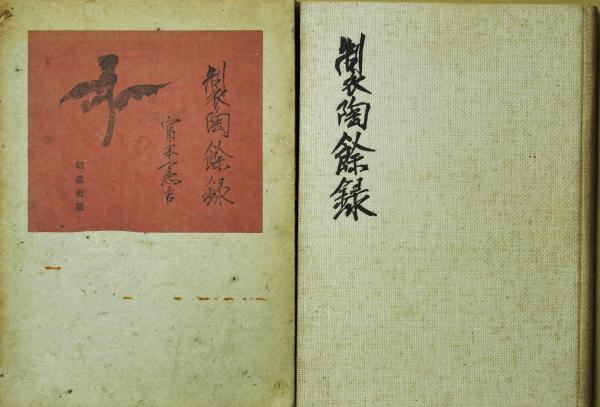 製陶餘録
富本憲吉
昭森社版
製陶餘録